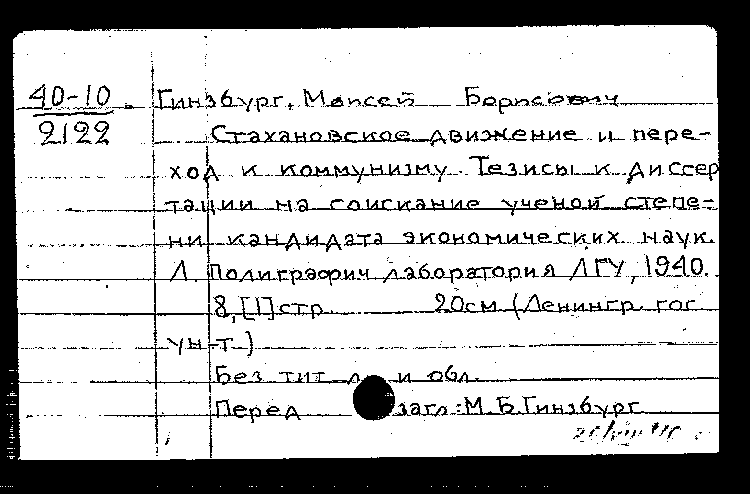 40-10 Гинзбург, Моисей Борисович
2122 Стахановское движение и пере-
ход к коммунизму. Тезисы к диссер
тации на соискание ученой степе-
ни кандидата экономических наук.
Л. Полиграфич лаборатория ЛГУ, 1940.
8, [1] стр 20см (Ленингр. гос
ун-т.)
Без тит л. и обл.
Перед загл: М. Б. Гинзбург